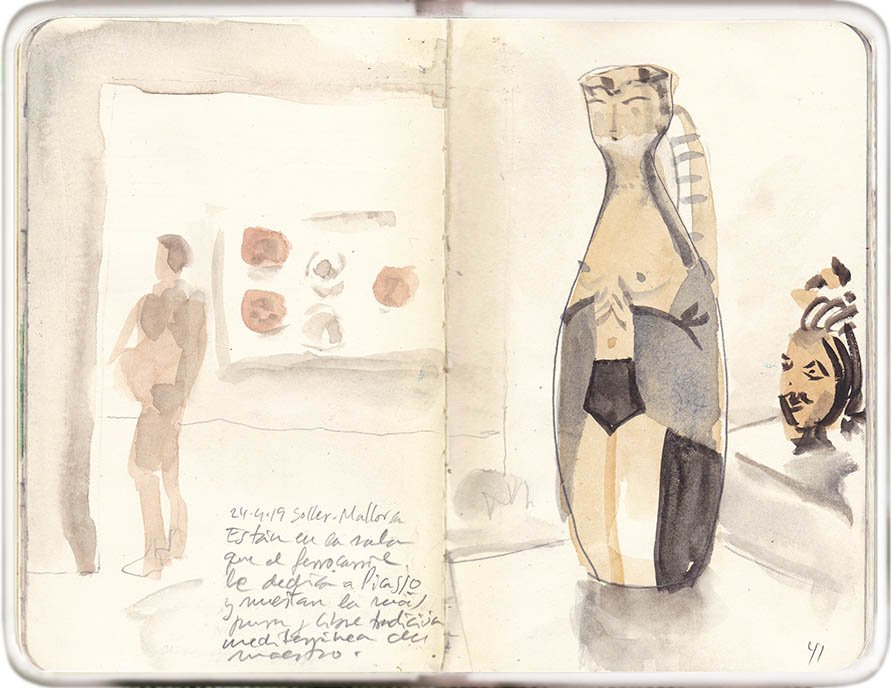 24·4·19 Soller·Mallorca
Están en la sala
que el ferrocarril
le dedica a Picasso
y muestran la más
pura y libre tradición
mediterránea del
maestro.
41